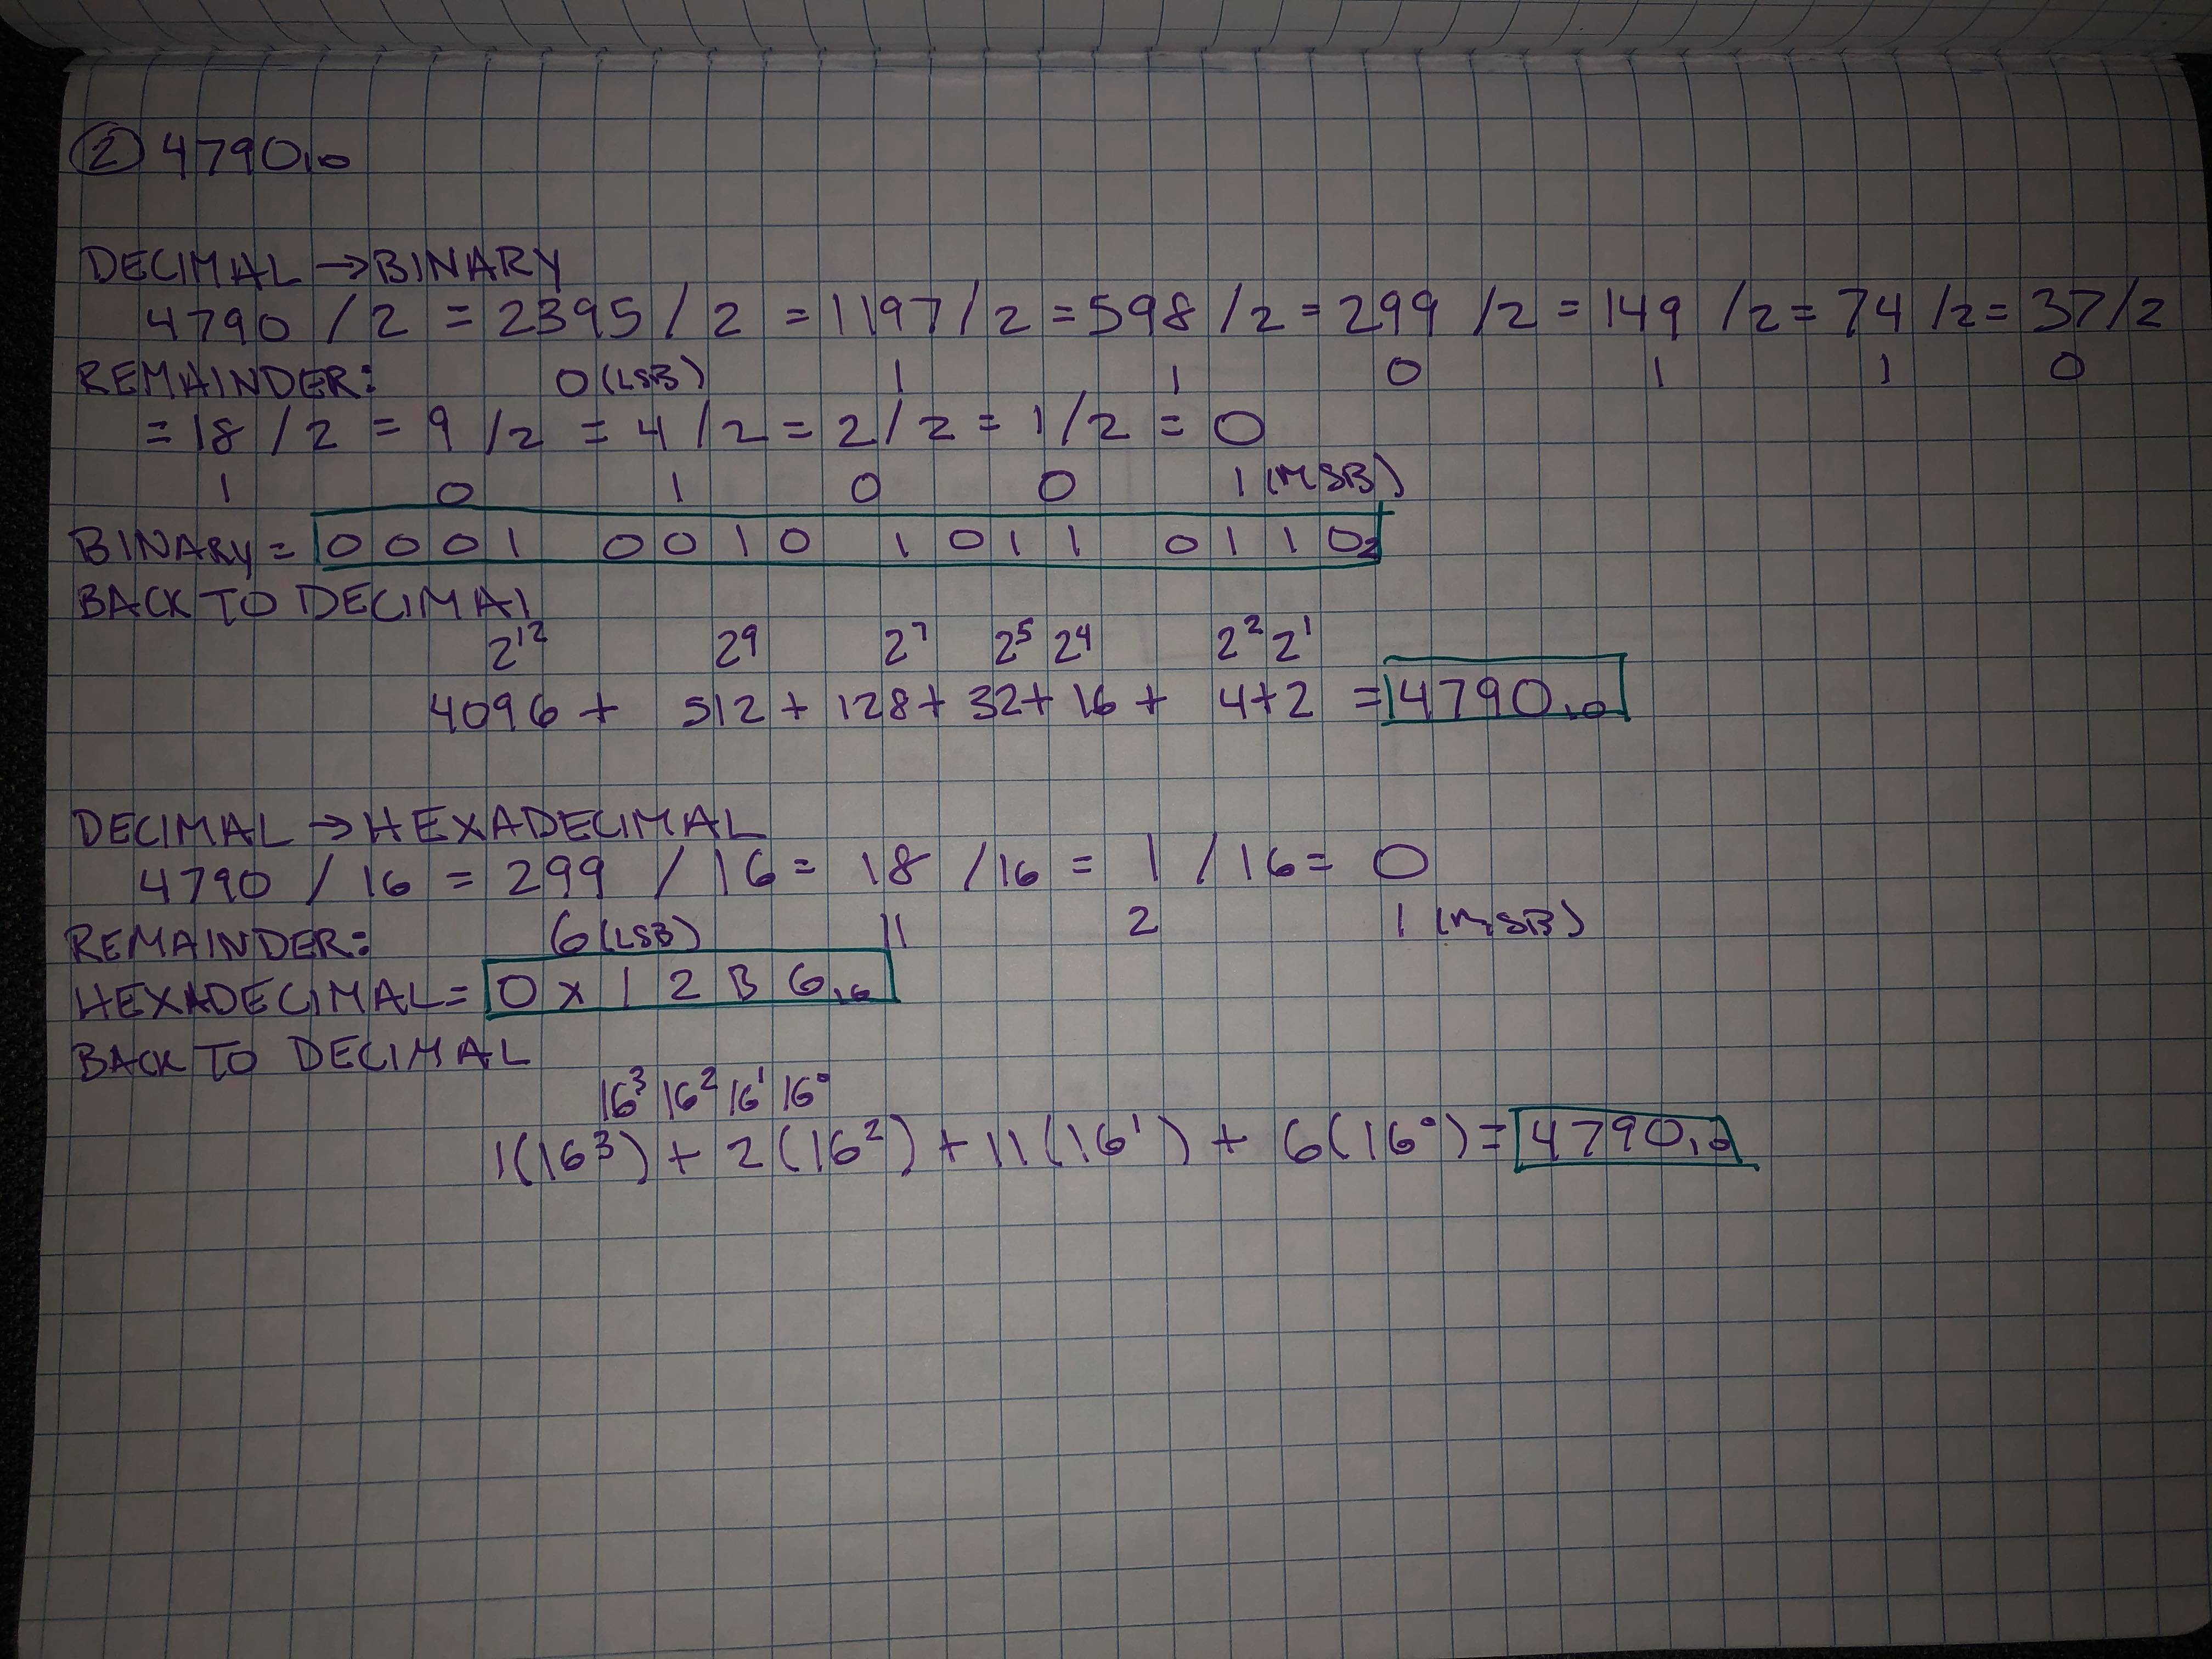 ② 4790₁₀
DECIMAL → BINARY
4790 / 2 = 2395 / 2 = 1197 / 2 = 598 / 2 = 299 / 2 = 149 / 2 = 74 / 2 = 37 / 2
REMAINDER: 0 (LSB) 1 1 0 1 1 0
= 18 / 2 = 9 / 2 = 4 / 2 = 2 / 2 = 1 / 2 = 0
1 0 1 0 0 1 (MSB)
BINARY = 0 0 0 1 0 0 1 0 1 0 1 1 0 1 1 0₂
BACK TO DECIMAL
2¹² 2⁹ 2⁷ 2⁵ 2⁴ 2² 2¹
4096 + 512 + 128 + 32 + 16 + 4 + 2 = 4790₁₀
DECIMAL → HEXADECIMAL
4790 / 16 = 299 / 16 = 18 / 16 = 1 / 16 = 0
REMAINDER: 6 (LSB) 11 2 1 (MSB)
HEXADECIMAL = 0 x 1 2 B 6₁₆
BACK TO DECIMAL
16³ 16² 16¹ 16⁰
1(16³) + 2(16²) + 11(16¹) + 6(16⁰) = 4790₁₀